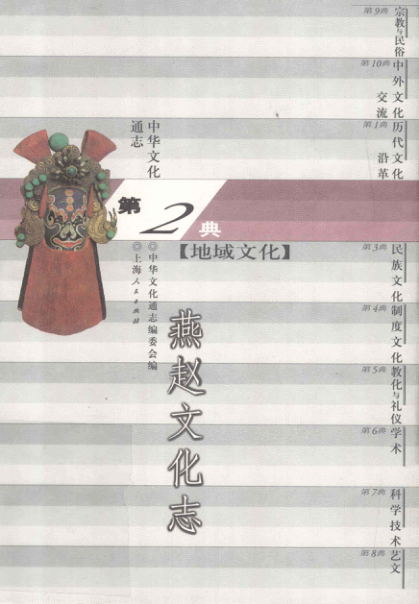 第9典 宗教与民俗
第10典 中外文化交流
第1典 历代文化沿革
中华文化通志
第2典
【地域文化】
◎中华文化通志编委会编
◎上海人民出版社
燕赵文化志
第3典 民族文化
第4典 制度文化
第5典 教化与礼仪
第6典 学术
第7典 科学技术
第8典 艺文